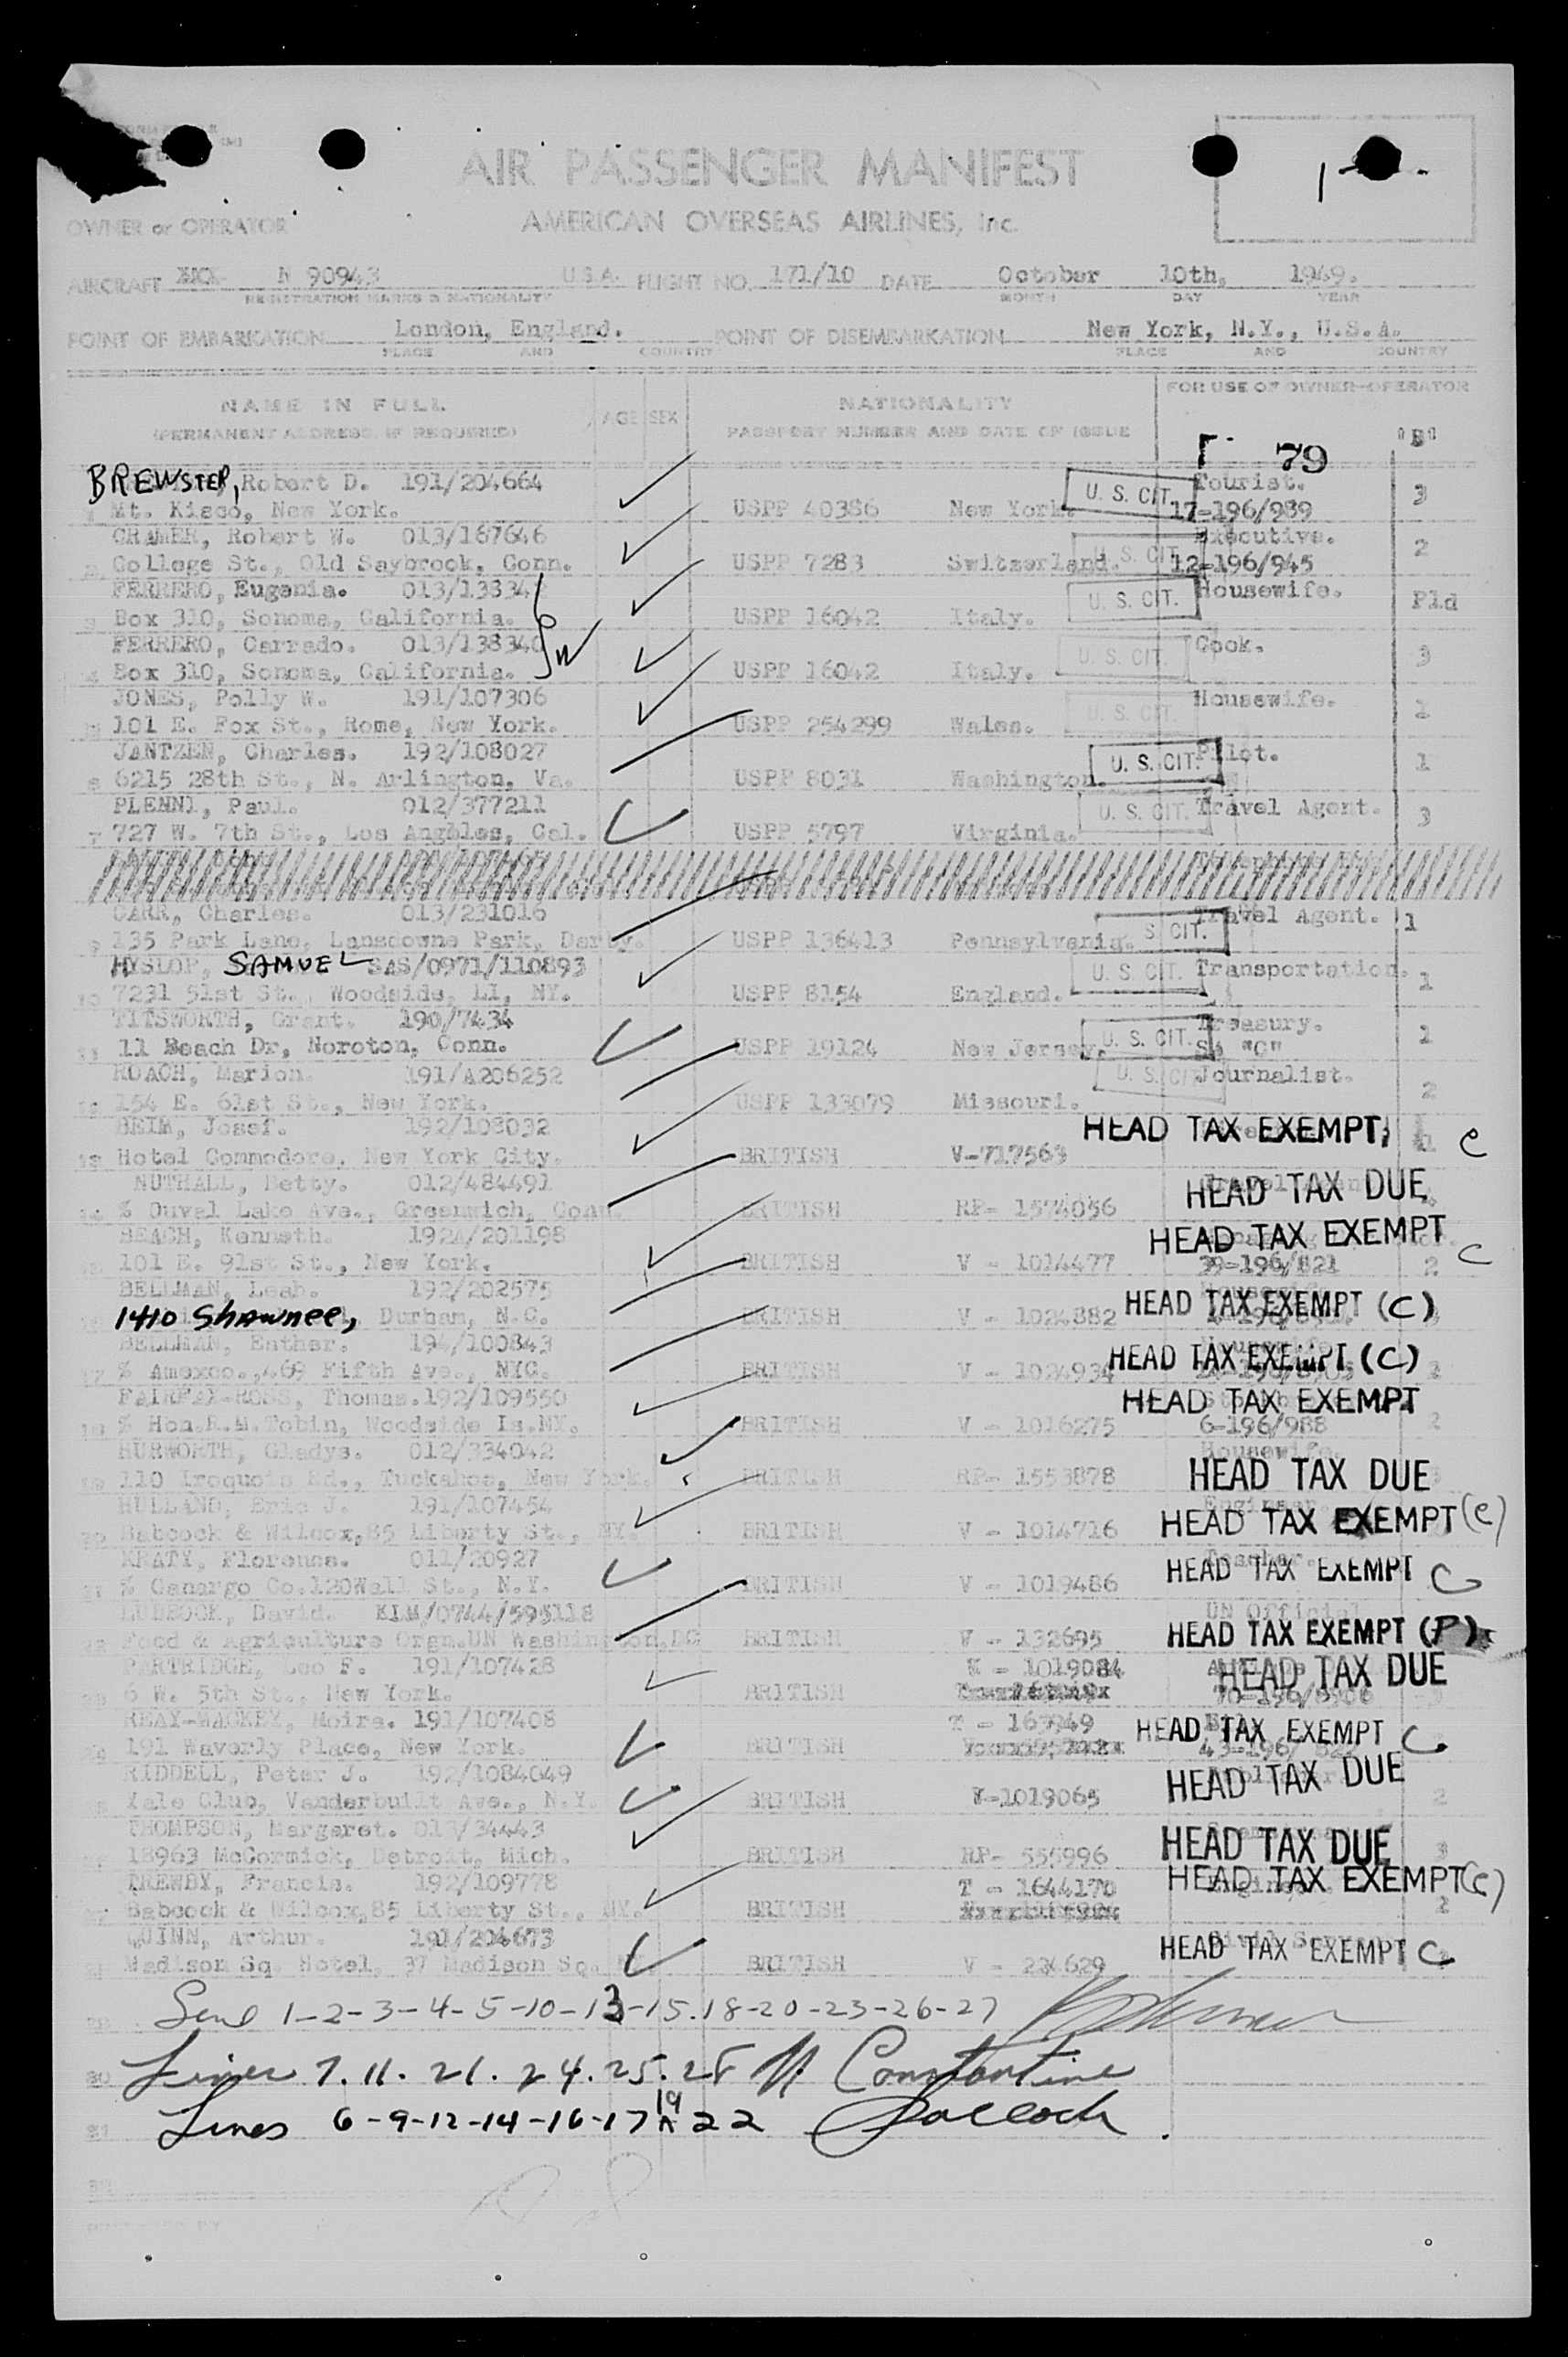 AIR PASSENGER MANIFEST
OWNER or OPERATOR AMERICAN OVERSEAS AIRLINES, Inc.
AIRCRAFT N 90943 U.S.A. FLIGHT NO. 171/10 DATE October 10th, 1949.
REGISTRATION MARKS & NATIONALITY MONTH DAY YEAR
POINT OF EMBARKATION London, England. POINT OF DISEMBARKATION New York, N.Y., U.S.A.
PLACE AND COUNTRY PLACE AND COUNTRY
NAME IN FULL AGE SEX NATIONALITY FOR USE OF OWNER-OPERATOR
(PERMANENT ADDRESS, IF REQUIRED) PASSPORT NUMBER AND DATE OF ISSUE "B"
79
BREWSTER, Robert D. 191/204664 Tourist.
1 Mt. Kisco, New York. USPP 40386 New York. U. S. CIT. 17-196/989 3
CRAMER, Robert W. 013/167646 Executive.
2 College St., Old Saybrook, Conn. USPP 7283 Switzerland. U. S. CIT. 12-196/945 2
FERRERO, Eugenia. 013/138342 Housewife.
3 Box 310, Sonoma, California. USPP 16042 Italy. U. S. CIT. Pld
FERRERO, Carrado. 013/138340 Cook.
4 Box 310, Sonoma, California. USPP 16042 Italy. U. S. CIT. 3
JONES, Polly W. 191/107306 Housewife.
5 101 E. Fox St., Rome, New York. USPP 254299 Wales. U. S. CIT. 1
JANTZEN, Charles. 192/108027 Pilot.
6 6215 28th St., N. Arlington, Va. USPP 8031 Washington. U. S. CIT. 1
PLENNI, Paul. 012/377211 Travel Agent.
7 727 W. 7th St., Los Angeles, Cal. USPP 5797 Virginia. U. S. CIT. 3
CARR, Charles. 013/231016 Travel Agent. 1
9 135 Park Lane, Lansdowne Park, Darby. USPP 136413 Pennsylvania. S. CIT.
HYSLOP, SAMUEL SAS/0971/110893 Transportation.
10 7231 51st St., Woodside, LI, NY. USPP 8154 England. U. S. CIT. 1
TITSWORTH, Grant. 190/7434 Treasury.
11 11 Beach Dr, Noroton, Conn. USPP 19124 New Jersey. U. S. CIT. "C" 1
ROACH, Marion. 191/A206252 U. S. CIT. Journalist.
12 154 E. 61st St., New York. USPP 133079 Missouri. 2
BEIM, Josef. 192/108032 HEAD TAX EXEMPT C
13 Hotel Commodore, New York City. BRITISH V-717563
NUTHALL, Betty. 012/484491 HEAD TAX DUE
14 % Duval Lake Ave., Greenwich, Conn. BRITISH RP- 1574056
BEACH, Kenneth. 192A/201198 HEAD TAX EXEMPT C
15 101 E. 91st St., New York. BRITISH V - 1014477 39-196/821 2
BELLMAN, Leah. 192/202575
1410 Shawnee, Durham, N.C. BRITISH V - 1024882 HEAD TAX EXEMPT (C)
BELLMAN, Esther. 194/100843
17 % Amexco., 469 Fifth Ave., NYC. BRITISH V - 1024934 HEAD TAX EXEMPT (C)
FAIRFAX-ROSS, Thomas. 192/109550 HEAD TAX EXEMPT
18 % Hon.R.M.Tobin, Woodside Is.NY. BRITISH V - 1016275 6-196/988 2
HURWORTH, Gladys. 012/334042 Housewife.
19 110 Iroquois Rd., Tuckahoe, New York. BRITISH RP- 1553878 HEAD TAX DUE
HULLAND, Eric J. 191/107454 Engineer.
20 Babcock & Wilcox, 85 Liberty St., NY BRITISH V - 1014716 HEAD TAX EXEMPT (C)
KRATY, Florence. 011/20927 Teacher.
21 % Canargo Co.120Wall St., N.Y. BRITISH V - 1019486 HEAD TAX EXEMPT C
LUBBOCK, David. KLM/0744/595118 UN Official
22 Food & Agriculture Orgn.UN Washington,DC BRITISH V - 132695 HEAD TAX EXEMPT (P)
PARTRIDGE, Leo F. 191/107428 V - 1019084 HEAD TAX DUE
23 6 W. 5th St., New York. BRITISH
REAY-MACKEY, Moira. 191/107408 T - 163949 HEAD TAX EXEMPT C
24 191 Waverly Place, New York. BRITISH
RIDDELL, Peter J. 192/1084049 HEAD TAX DUE
25 Yale Club, Vanderbuilt Ave., N.Y. BRITISH V-1019065 2
THOMPSON, Margaret. 013/34443
26 18963 McCormick, Detroit, Mich. BRITISH RP- 555996 HEAD TAX DUE 3
TREWBY, Francis. 192/109778 T - 1644170 HEAD TAX EXEMPT (C)
27 Babcock & Wilcox, 85 Liberty St., NY. BRITISH 2
QUINN, Arthur. 191/204673
28 Madison Sq. Hotel, 37 Madison Sq. BRITISH V - 224629 HEAD TAX EXEMPT C
1-2-3-4-5-10-13-15-18-20-23-26-27
30 Lines 7. 11. 21. 24. 25. 28 Constantine
31 Lines 6-9-12-14-16-17 19 22